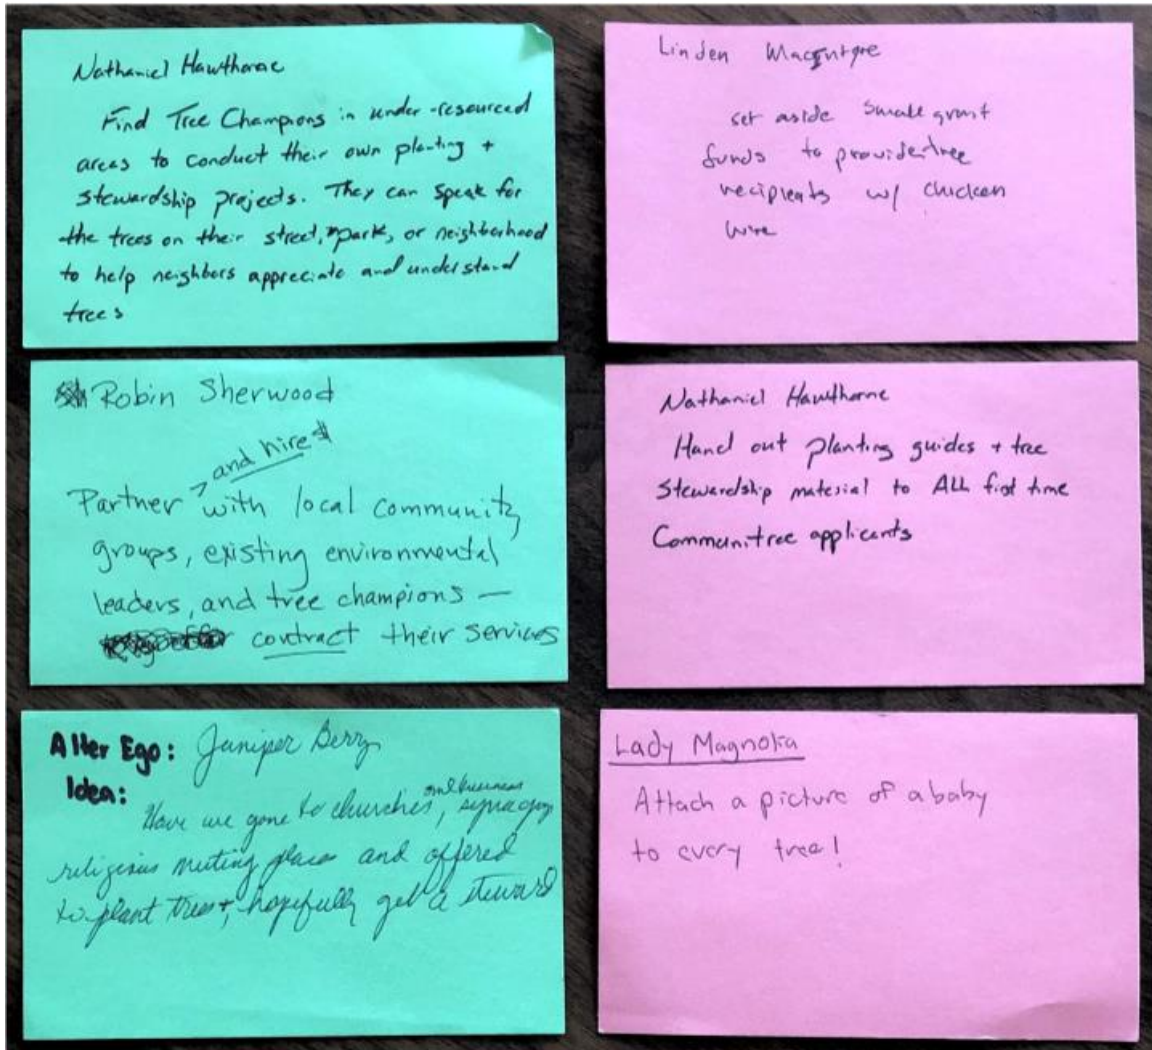 Nathaniel Hawthorne
Find Tree Champions in under-resourced
areas to conduct their own planting +
stewardship projects. They can speak for
the trees on their street, park, or neighborhood
to help neighbors appreciate and understand
trees
Robin Sherwood
and hire
Partner with local community
groups, existing environmental
leaders, and tree champions —
contract their services
Alter Ego: Juniper Berry
Idea:
and business
Have we gone to churches, synagog
religious meeting places and offered
to plant trees +, hopefully get a steward
Linden Macintyre
set aside small grant
funds to provide tree
recipients w/ chicken
wire
Nathaniel Hawthorne
Hand out planting guides + tree
Stewardship material to ALL first time
Communitree applicants
Lady Magnolia
Attach a picture of a baby
to every tree!